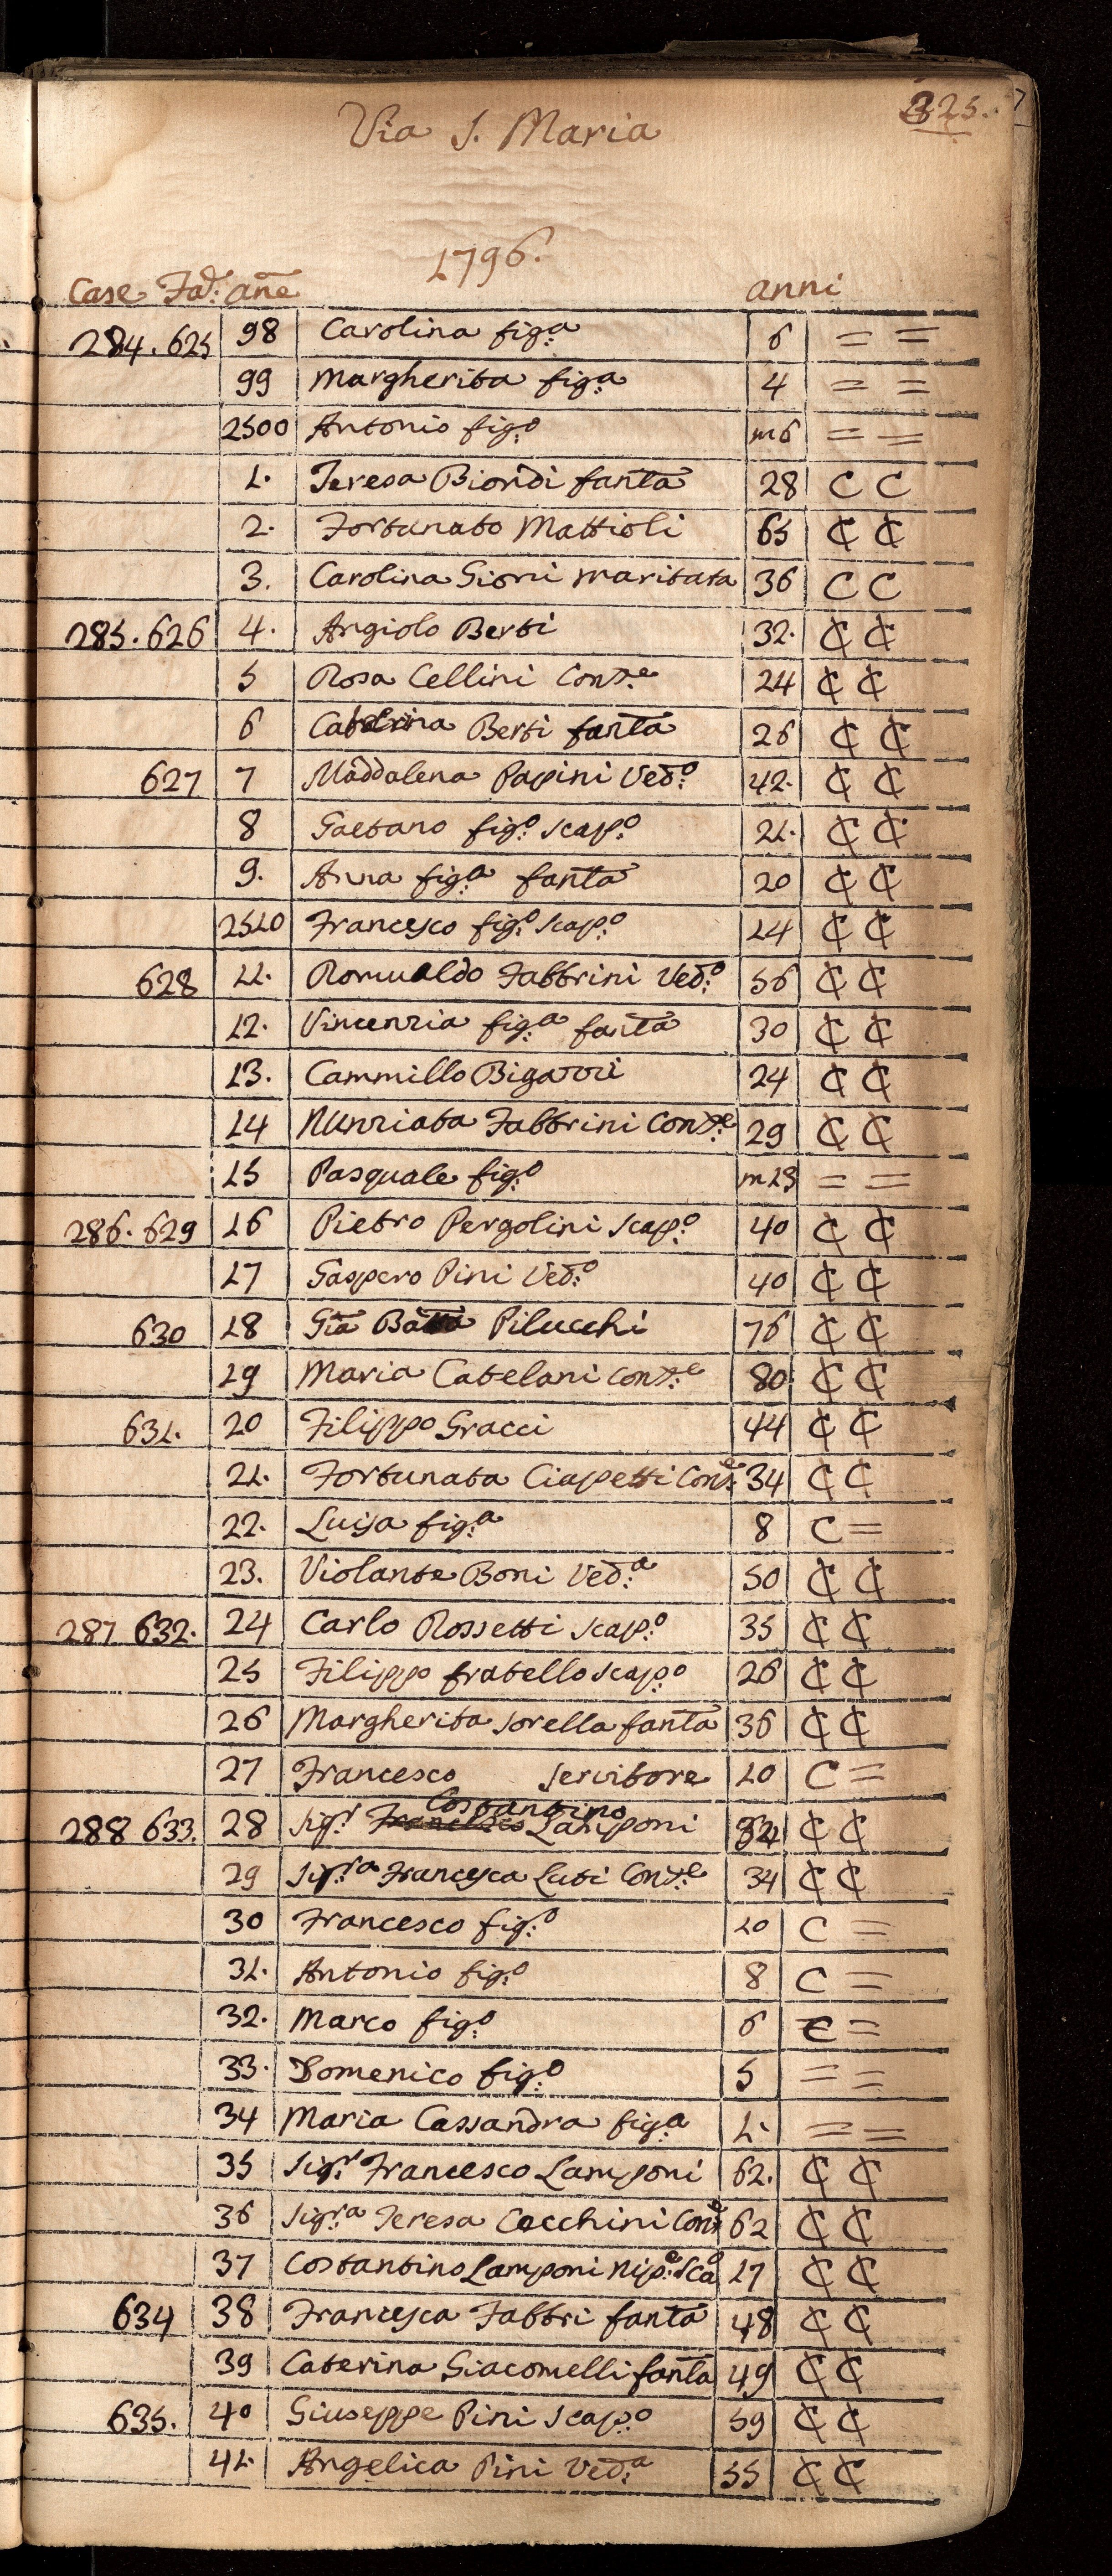 325.
Via S. Maria
1796.
Case Fad: añe anni
284. 625 98 Carolina fig.a 6 = =
99 Margherita fig.a 4 = =
2500 Antonio fig.o m6 = =
1. Teresa Biondi fanta 28 C C
2. Fortunato Mattioli 65 ₵ ₵
3. Carolina Gioni maritata 36 C C
285. 626 4. Angiolo Berti 32. ₵ ₵
5 Rosa Cellini Cons.e 24 ₵ ₵
6 Caterina Berti fanta 26 ₵ ₵
627 7 Maddalena Papini Ved.o 42. ₵ ₵
8 Gaetano fig.o scap.o 21. ₵ ₵
9. Anna fig.a fanta 20 ₵ ₵
2510 Francesco fig.o scap.o 14 ₵ ₵
628 11. Romualdo Fabbrini Ved.o 56 ₵ ₵
12. Vincenzia fig.a fanta 30 ₵ ₵
13. Cammillo Bigazzi 24 ₵ ₵
14 Nunziata Fabbrini Cons.e 29 ₵ ₵
15 Pasquale fig.o = =
286. 629 16 Pietro Pergolini scap.o 40 ₵ ₵
17 Gaspero Pini Ved.o 40 ₵ ₵
630 18 Gia Batta Pilucchi 76 ₵ ₵
19 Maria Catelani cons.e 80 ₵ ₵
631. 20 Filippo Gracci 44 ₵ ₵
21. Fortunata Ciapetti Cons.e 34 ₵ ₵
22. Luisa fig.a 8 C =
23. Violante Boni Ved.a 50 ₵ ₵
287 632. 24 Carlo Rossetti scap.o 35 ₵ ₵
25 Filippo fratello scap.o 26 ₵ ₵
26 Margherita sorella fanta 36 ₵ ₵
27 Francesco servitore 10 C =
Costantino
288 633. 28 Sig.r Francesco Lamponi ₵ ₵
29 Sig.ra Francesca Luti Cons.e 34 ₵ ₵
30 Francesco fig.o 10 C =
31. Antonio fig.o 8 C =
32. Marco fig.o 6 C =
33. Domenico fig.o 5 = =
34 Maria Cassandra fig.a 1. = =
35 Sig.r Francesco Lamponi 62. ₵ ₵
36 Sig.ra Teresa Cecchini Cons.e 62 ₵ ₵
37 Costantino Lamponi Nip.e Sca.o 17 ₵ ₵
634 38 Francesca Fabbri fanta 48 ₵ ₵
39 Caterina Giacomelli fanta 49 ₵ ₵
635. 40 Giuseppe Pini scap.o 59 ₵ ₵
41. Angelica Pini Ved.a 55 ₵ ₵